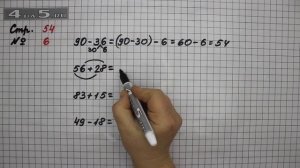 4-5.NET
Стр. 54
№ 6
90-36=(90-30)-6=60-6=54
30 6
56+28=
83+15=
49-18=